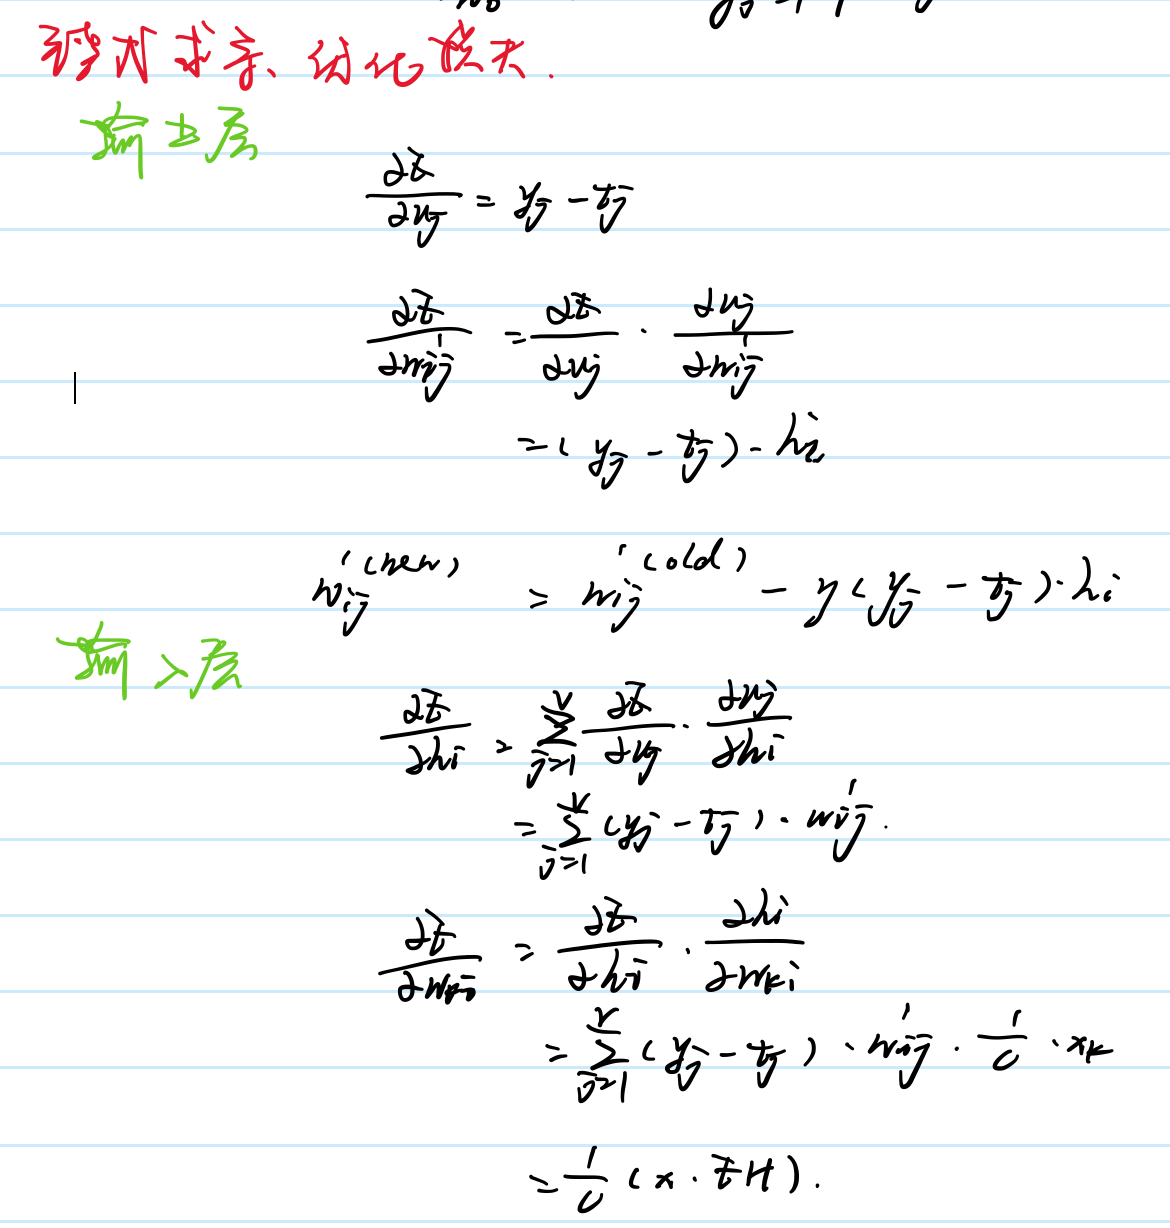 链式求导、优化损失.
输出层
∂E/∂uj = yj - tj
∂E/∂w'ij = ∂E/∂uj · ∂uj/∂w'ij
= (yj - tj) · hi
w'ij(new) = w'ij(old) - η(yj - tj) · hi
输入层
∂E/∂hi = Σ_{j=1}^{V} ∂E/∂uj · ∂uj/∂hi
= Σ_{j=1}^{V} (yj - tj) · w'ij.
∂E/∂wki = ∂E/∂hi · ∂hi/∂wki
= Σ_{j=1}^{V} (yj - tj) · w'ij · 1/C · xk
= 1/C (x · EH).